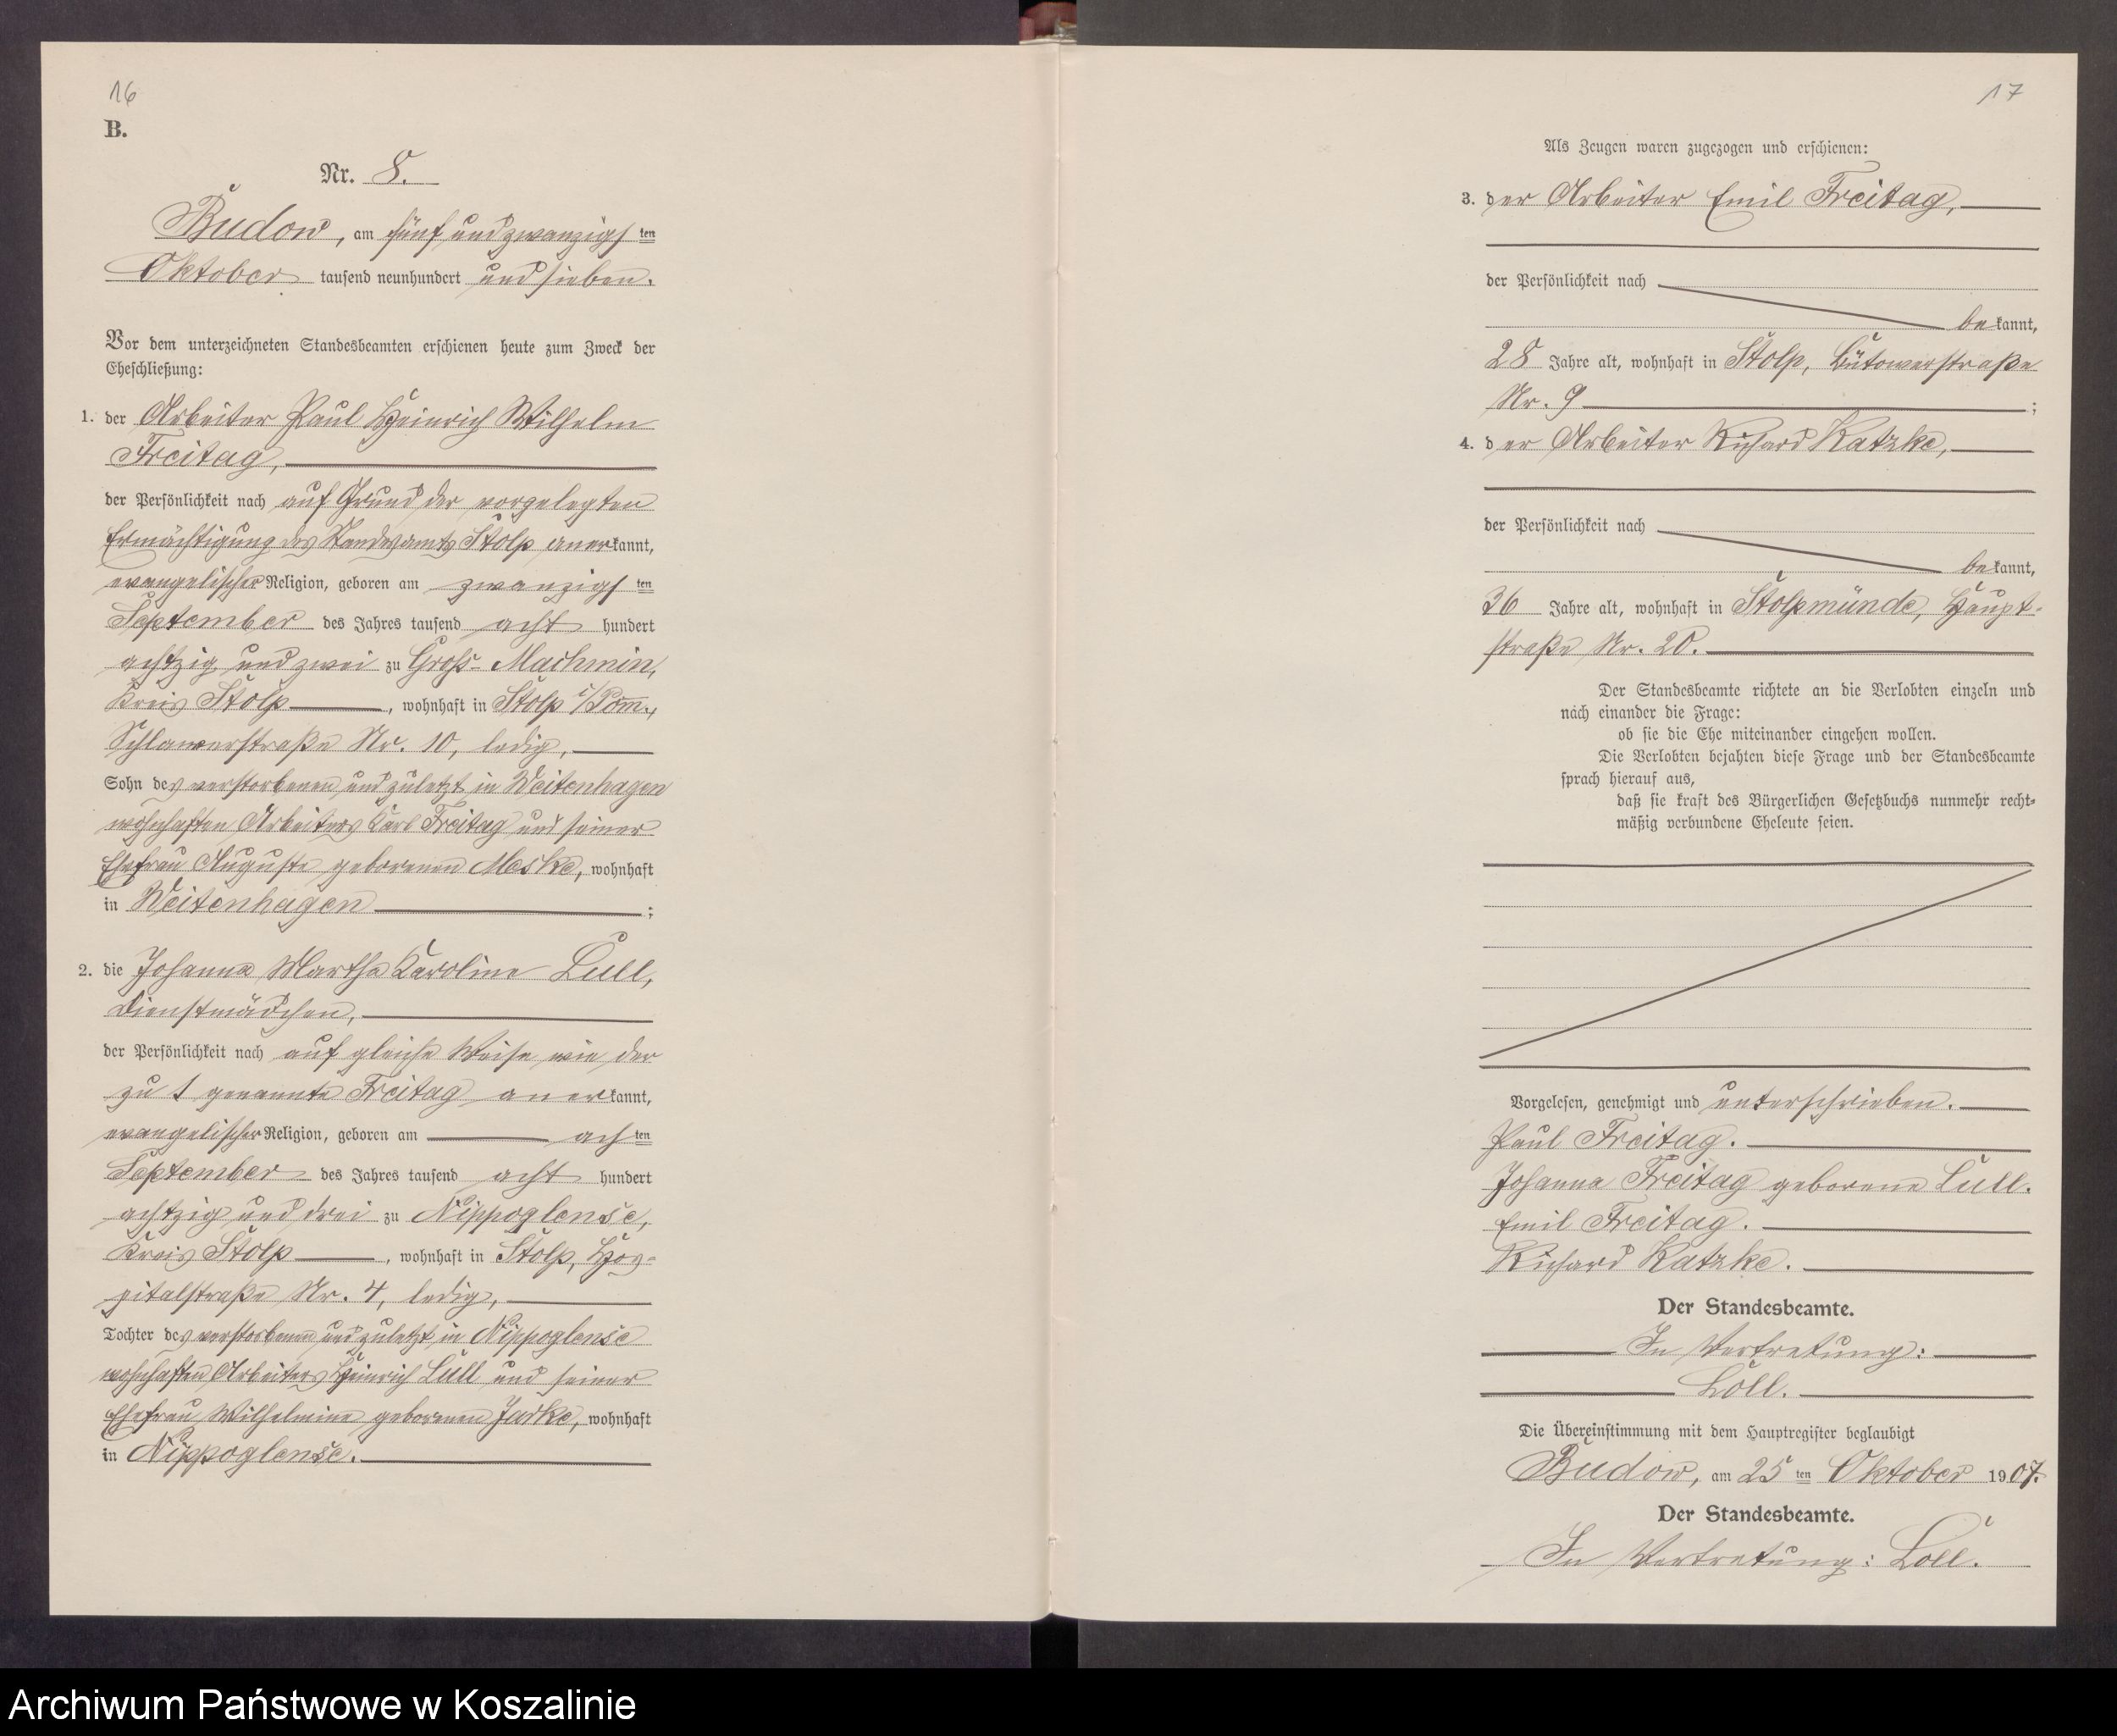 16
B.
Nr. 8.
Budow, am fünfundzwanzigsten
Oktober tausend neunhundert und sieben.
Vor dem unterzeichneten Standesbeamten erschienen heute zum Zweck der
Eheschließung:
1. der Arbeiter Paul Heinrich Wilhelm
Freitag,
der Persönlichkeit nach auf Grund der vorgelegten
Ermächtigung des Standesamts Stolp anerkannt,
evangelischer Religion, geboren am zwanzigsten
September des Jahres tausend acht hundert
achtzig und zwei zu Groß-Machmin,
Kreis Stolp, wohnhaft in Stolp i/Pom.,
Schlawerstraße Nr. 10, ledig,
Sohn des verstorbenen und zuletzt in Weitenhagen
wohnhaften Arbeiters Karl Freitag und seiner
Ehefrau Auguste geborenen Meske, wohnhaft
in Weitenhagen;
2. die Johanna Martha Karoline Lüll,
Dienstmädchen,
der Persönlichkeit nach auf gleiche Weise wie der
zu 1 genannte Freitag anerkannt,
evangelischer Religion, geboren am achten
September des Jahres tausend acht hundert
achtzig und drei zu Nippoglense,
Kreis Stolp, wohnhaft in Stolp, Hos-
pitalstraße Nr. 4, ledig,
Tochter des verstorbenen und zuletzt in Nippoglense
wohnhaften Arbeiters Heinrich Lüll und seiner
Ehefrau Wilhelmine geborenen Jarke, wohnhaft
in Nippoglense.
17
Als Zeugen waren zugezogen und erschienen:
3. der Arbeiter Emil Freitag,
der Persönlichkeit nach
bekannt,
28 Jahre alt, wohnhaft in Stolp, Bütowerstraße
Nr. 9;
4. der Arbeiter Richard Katzke,
der Persönlichkeit nach
bekannt,
36 Jahre alt, wohnhaft in Stolpmünde, Haupt-
straße Nr. 20.
Der Standesbeamte richtete an die Verlobten einzeln und
nach einander die Frage:
ob sie die Ehe miteinander eingehen wollen.
Die Verlobten bejahten diese Frage und der Standesbeamte
sprach hierauf aus,
daß sie kraft des Bürgerlichen Gesetzbuchs nunmehr recht-
mäßig verbundene Eheleute seien.
Vorgelesen, genehmigt und unterschrieben.
Paul Freitag.
Johanna Freitag geborene Lüll.
Emil Freitag.
Richard Katzke.
Der Standesbeamte.
In Vertretung:
Löll.
Die Übereinstimmung mit dem Hauptregister beglaubigt
Budow, am 25ten Oktober 1907.
Der Standesbeamte.
In Vertretung: Löll.
Archiwum Państwowe w Koszalinie